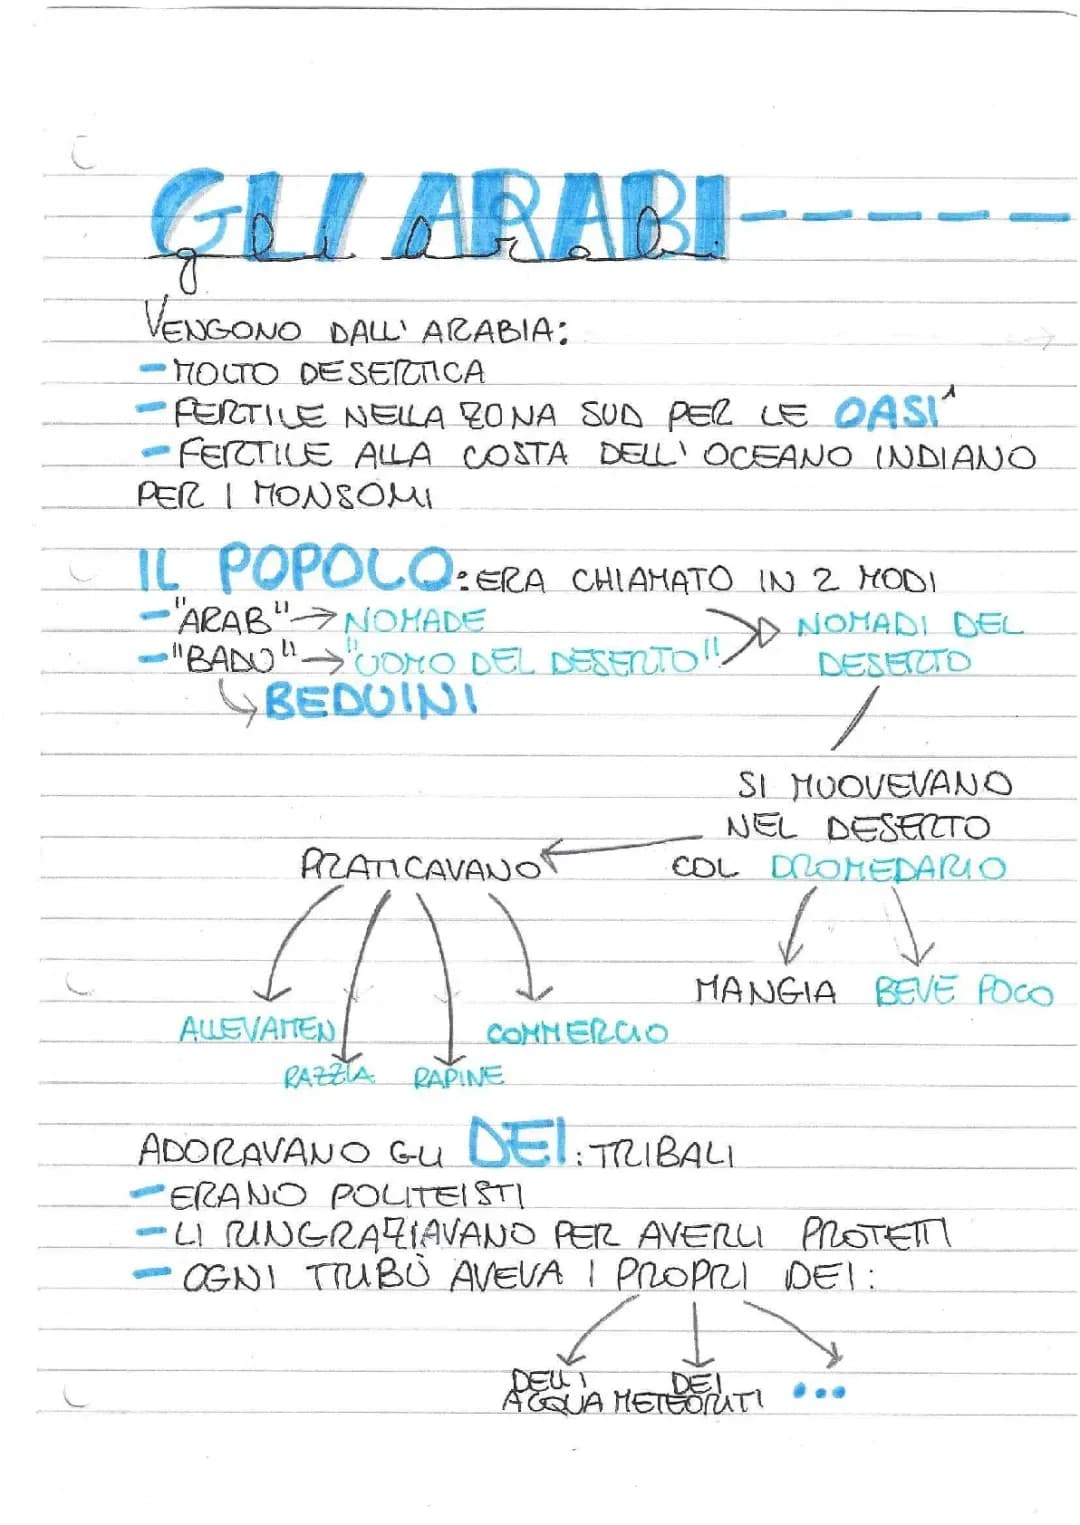 GLI ARABI
gli arabi
VENGONO DALL'ARABIA:
- MOLTO DESERTICA
- FERTILE NELLA ZONA SUD PER LE OASI
- FERTILE ALLA COSTA DELL'OCEANO INDIANO
PER I MONSOMI
IL POPOLO: ERA CHIAMATO IN 2 MODI
- "ARAB" → NOMADE
- "BADU" → "UOMO DEL DESERTO"
NOMADI DEL
DESERTO
BEDUINI
SI MUOVEVANO
NEL DESERTO
COL DROMEDARIO
PRATICAVANO
MANGIA BEVE POCO
ALLEVAMEN COMMERCIO
RAZZIA RAPINE
ADORAVANO GLI DEI: TRIBALI
- ERANO POLITEISTI
- LI RINGRAZIAVANO PER AVERLI PROTETTI
- OGNI TRIBÙ AVEVA I PROPRI DEI:
DELL' DEI
ACQUA METEORITI ...